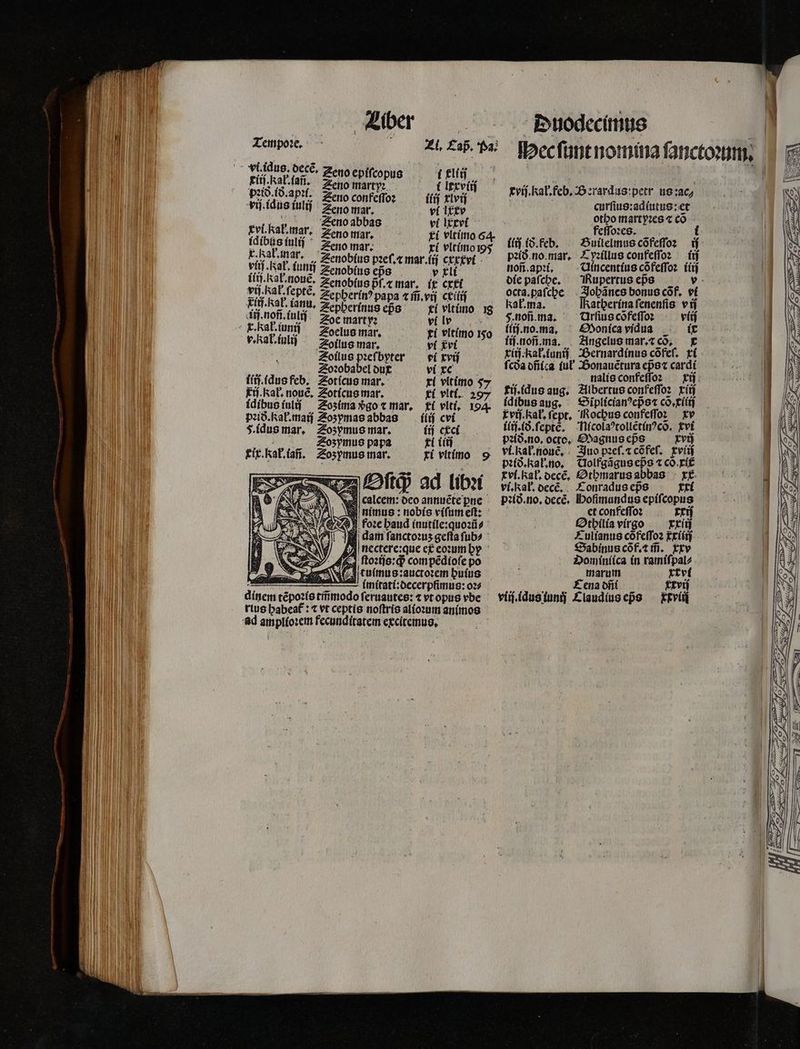 Liber
Tempoꝛe. Li. Cap̃. Pa.
vi.idus. decẽ. Zeno epiſcopus i xliij
xiij.kal̃.iañ. Zeno martyꝛ i lxxviij
pꝛid̃.id̃.apꝛi. Zeno confeſſoꝛ iiij xlvij
vij.idus iulij Zeno mar. vi lxxv
Zeno abbas vi lxxvi
xvi.kal̃.mar. Zeno mar. xi vltimo 64
idibus iulij Zeno mar. xi vltimo 195
x.kal̃.mar. Zenobius pꝛeſ.⁊ mar.iij cxxxvi
viij.kal̃.iunij Zenobius ep̃s v xli
iiij.kal̃.nouẽ. Zenobius p̃ſ.⁊ mar. ix cxxi
vij.kal̃.ſeptẽ. Zepherinꝰ papa ⁊ m̃.vij cxiiij
xiij.kal̃.ianu. Zepherinus ep̃s xi vltimo 18
iij.noñ.iulij Zoe martyꝛ vi lv
x.kal̃.iunij Zoelus mar. xi vltimo 150
v.kal̃.iulij Zoilus mar. vi xvi
Zoilus pꝛeſbyter vi xvij
Zoꝛobabel dux vi xc
iiij.idus feb. Zoticus mar. xi vltimo 57
xij.kal̃. nouẽ. Zoticus mar. xi vlti. 297
idibus iulij Zozima v̾go ⁊ mar. xi vlti. 194
pꝛid̃.kal̃.maij Zozymas abbas iiij cvi
5.idus mar. Zozymus mar. iij cxci
Zozymus papa xi iiij
xix.kal̃.iañ. Zozymus mar. xi vltimo 9
POſtꝙ̃ ad libꝛi
calcem: deo annuẽte pue
nimus : nobis viſum eſt:
foꝛe haud inutile:quoꝛũ⸗
dam ſanctoꝛuꝫ geſta ſub⸗
nectere:que ex eoꝛum hy
ſtoꝛijs:ꝙ̃ compẽdioſe po
tuimus:auctoꝛem huius
imitati:decerpſimus: oꝛ⸗
dinem tẽpoꝛis tm̃modo ſeruantes: ⁊ vt opus vbe
rius habeat̃ : ⁊ vt ceptis noſtris alioꝛum animos
ad amplioꝛem fecunditatem excitemus.
Duodecimus
Hec ſunt nomina ſanctoꝛum.
xvij.kal̃.feb. Berardus:petrus:ac⸗
curſius:adiutus: et
otho martyꝛes ⁊ cõ
feſſoꝛes. i
iiij id̃.feb. Guilelmus cõfeſſoꝛ ij
pꝛid̃.no.mar. Cyꝛillus confeſſoꝛ iij
noñ.apꝛi. Vincentius cõfeſſoꝛ iiij
die paſche. Rupertus ep̃s v
octa.paſche Johãnes bonus cõf. vi
kal̃.ma. Katherina ſenenſis vij
5.noñ.ma. Urſius cõfeſſoꝛ viij
iiij.no.ma. Monica vidua ix
iij.noñ.ma. Angelus mar.⁊ cõ. x
xiij.kal̃.iunij Bernardinus cõfeſ. xi
ſcd̃a dñi:a iul̃ Bonauẽtura ep̃s⁊ cardi
nalis confeſſoꝛ xij
xij.idus aug. Albertus confeſſoꝛ xiij
idibus aug. Siplicianꝰep̃s⁊ cõ.xiiij
xvij.kal̃. ſept. Rochus confeſſoꝛ xv
iiij.id̃.ſeptẽ. Nicolaꝰtollẽtinꝰcõ. xvi
pꝛid̃.no. octo. Magnus ep̃s xvij
vi.kal̃.nouẽ. Juo pꝛeſ.⁊ cõfeſ. xviij
pꝛid̃.kal̃.no. Volfgãgus ep̃s ⁊ cõ.xix
xvi.kal̃. decẽ. Othmarus abbas xx
vi.kal̃. decẽ. Conradus ep̃s xxi
pꝛid̃.no. decẽ. Hoſimundus epiſcopus
et confeſſoꝛ xxij
Othilia virgo xxiij
Culianus cõfeſſoꝛ xxiiij
Sabinus cõf.⁊ m̃. xxv
Dominica in ramiſpal⸗
marum xxvi
Cena dñi xxvij
viij.idus iunij Claudius ep̃s xxviij